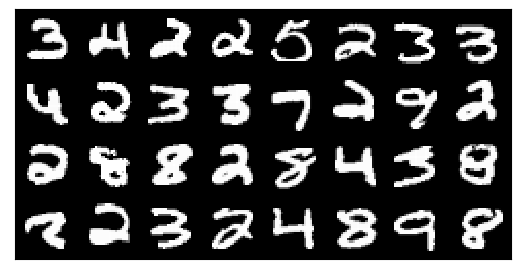 3 4 2 2 5 2 3 3
4 2 3 3 7 2 9 2
2 8 8 2 8 4 3 8
2 2 3 2 4 8 9 8